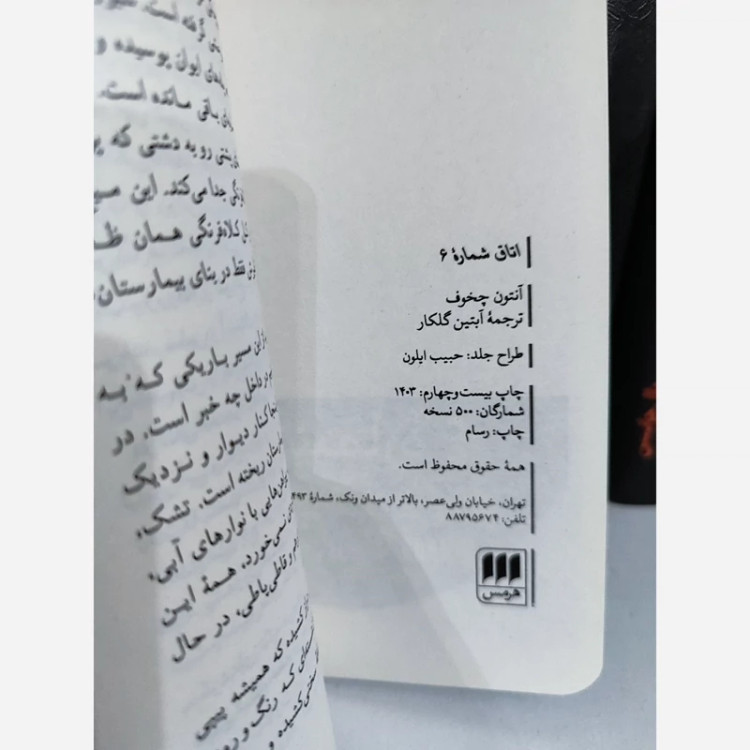 اتاق شمارهٔ ۶
آنتون چخوف
ترجمهٔ آبتین گلکار
طراح جلد: حبیب ایلون
چاپ بیست‌وچهارم: ۱۴۰۳
شمارگان: ۵۰۰ نسخه
چاپ: رسام
همهٔ حقوق محفوظ است.
تهران، خیابان ولی‌عصر، بالاتر از میدان ونک، شمارهٔ
تلفن: ۸۸۷۹۵۶۷۴
هرمس
گرفته است.
ایوان پوسیده و
باقی مانده است.
رو به دشتی که
جدا می‌کند. این
کلاه‌فرنگی همان
فقط در بنای بیمارستان
این مسیر باریکی که به
در داخل چه خبر است. در
کنار دیوار و نزدیک
ریخته است. تشک،
با نوارهای آبی،
نمی‌خورد، همهٔ این
قاطی‌پاطی، در حال
که همیشه پیپی
که رنگ و
کشیده و